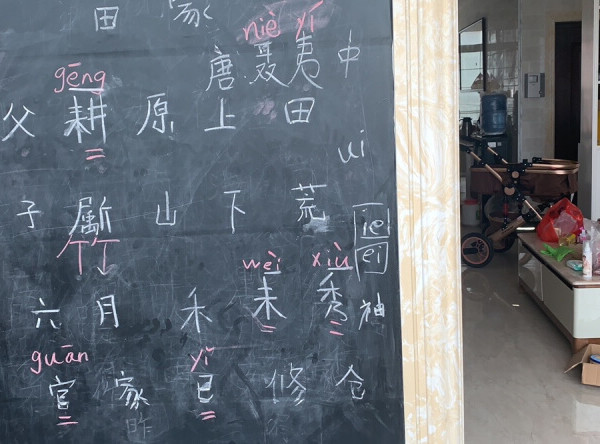 田 家
niè yí
唐 聂 夷 中
gēng
父 耕 原 上 田
ui
子 斸 山 下 荒
竹
ie
ei
wèi xiù
六 月 禾 未 秀
guān yǐ
官 家 已 修 仓
昨